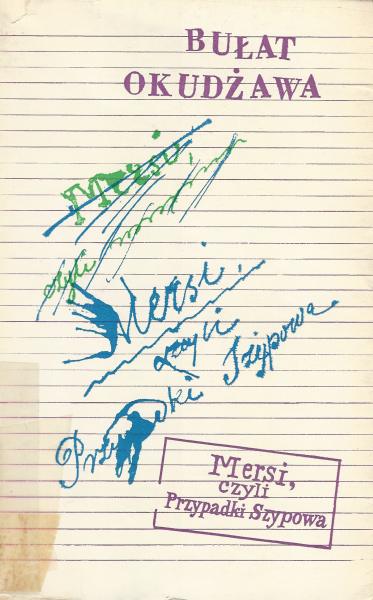 BUŁAT
OKUDŻAWA
Mersi,
czyli
Mersi,
czyli
Przypadki Szypowa
Mersi,
czyli
Przypadki Szypowa